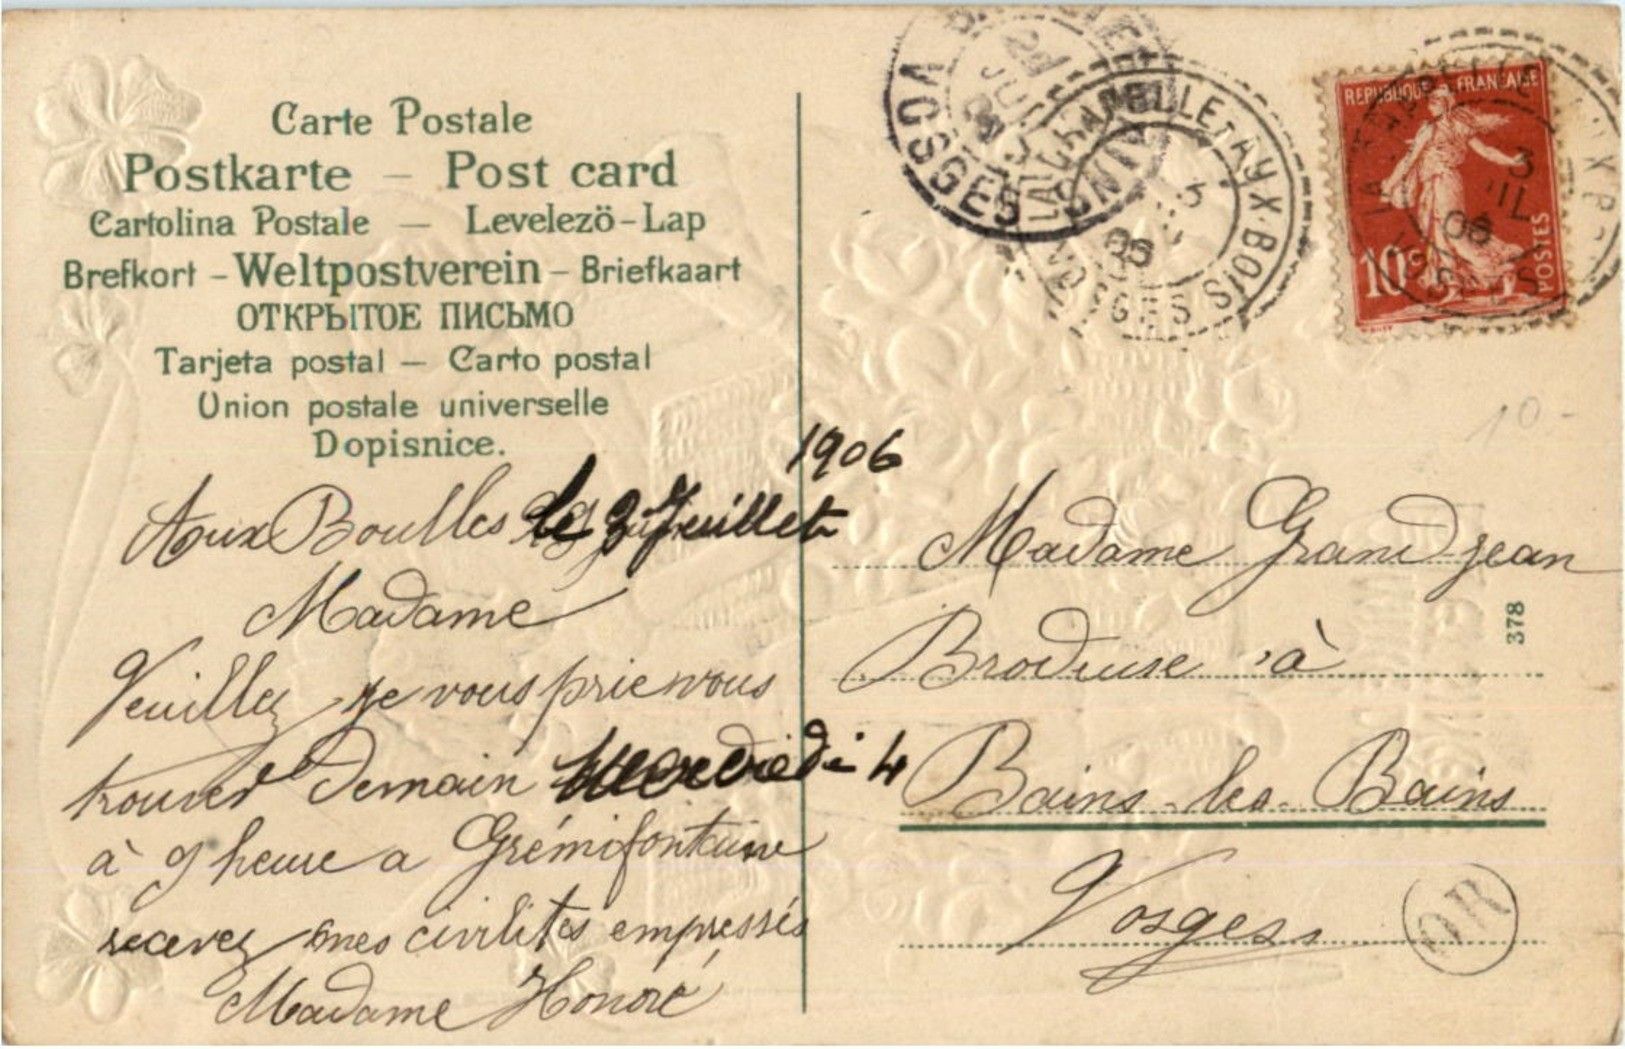 Carte Postale
Postkarte – Post card
Cartolina Postale – Levelezö-Lap
Brefkort – Weltpostverein – Briefkaart
ОТКРЫТОЕ ПИСЬМО
Tarjeta postal – Carto postal
Union postale universelle
Dopisnice.
1906
Aux Boulles le 3 Juillet
Madame
Veuillez je vous prie vous
trouver demain mercredi 4
à 9 heure a Grémifontaine
recevez mes civilités empressés
Madame Honoré
VOSGES BAINS
LA CHAPELLE-AUX-BOIS
06
REPUBLIQUE FRANÇAISE
10c
POSTES
3
06
10-
Madame Grand-jean
Brodeuse à
Bains-les-Bains
Vosges
OR
378